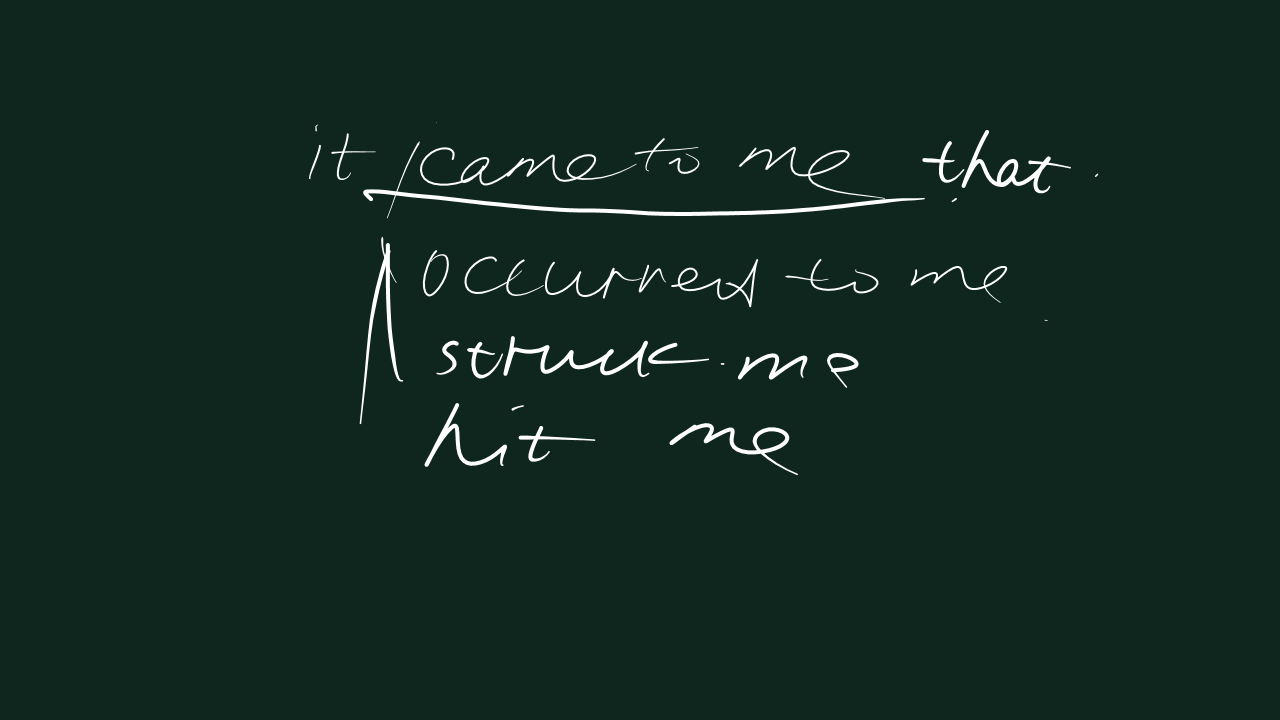 it / came to me that
occurred to me
struck me
hit me